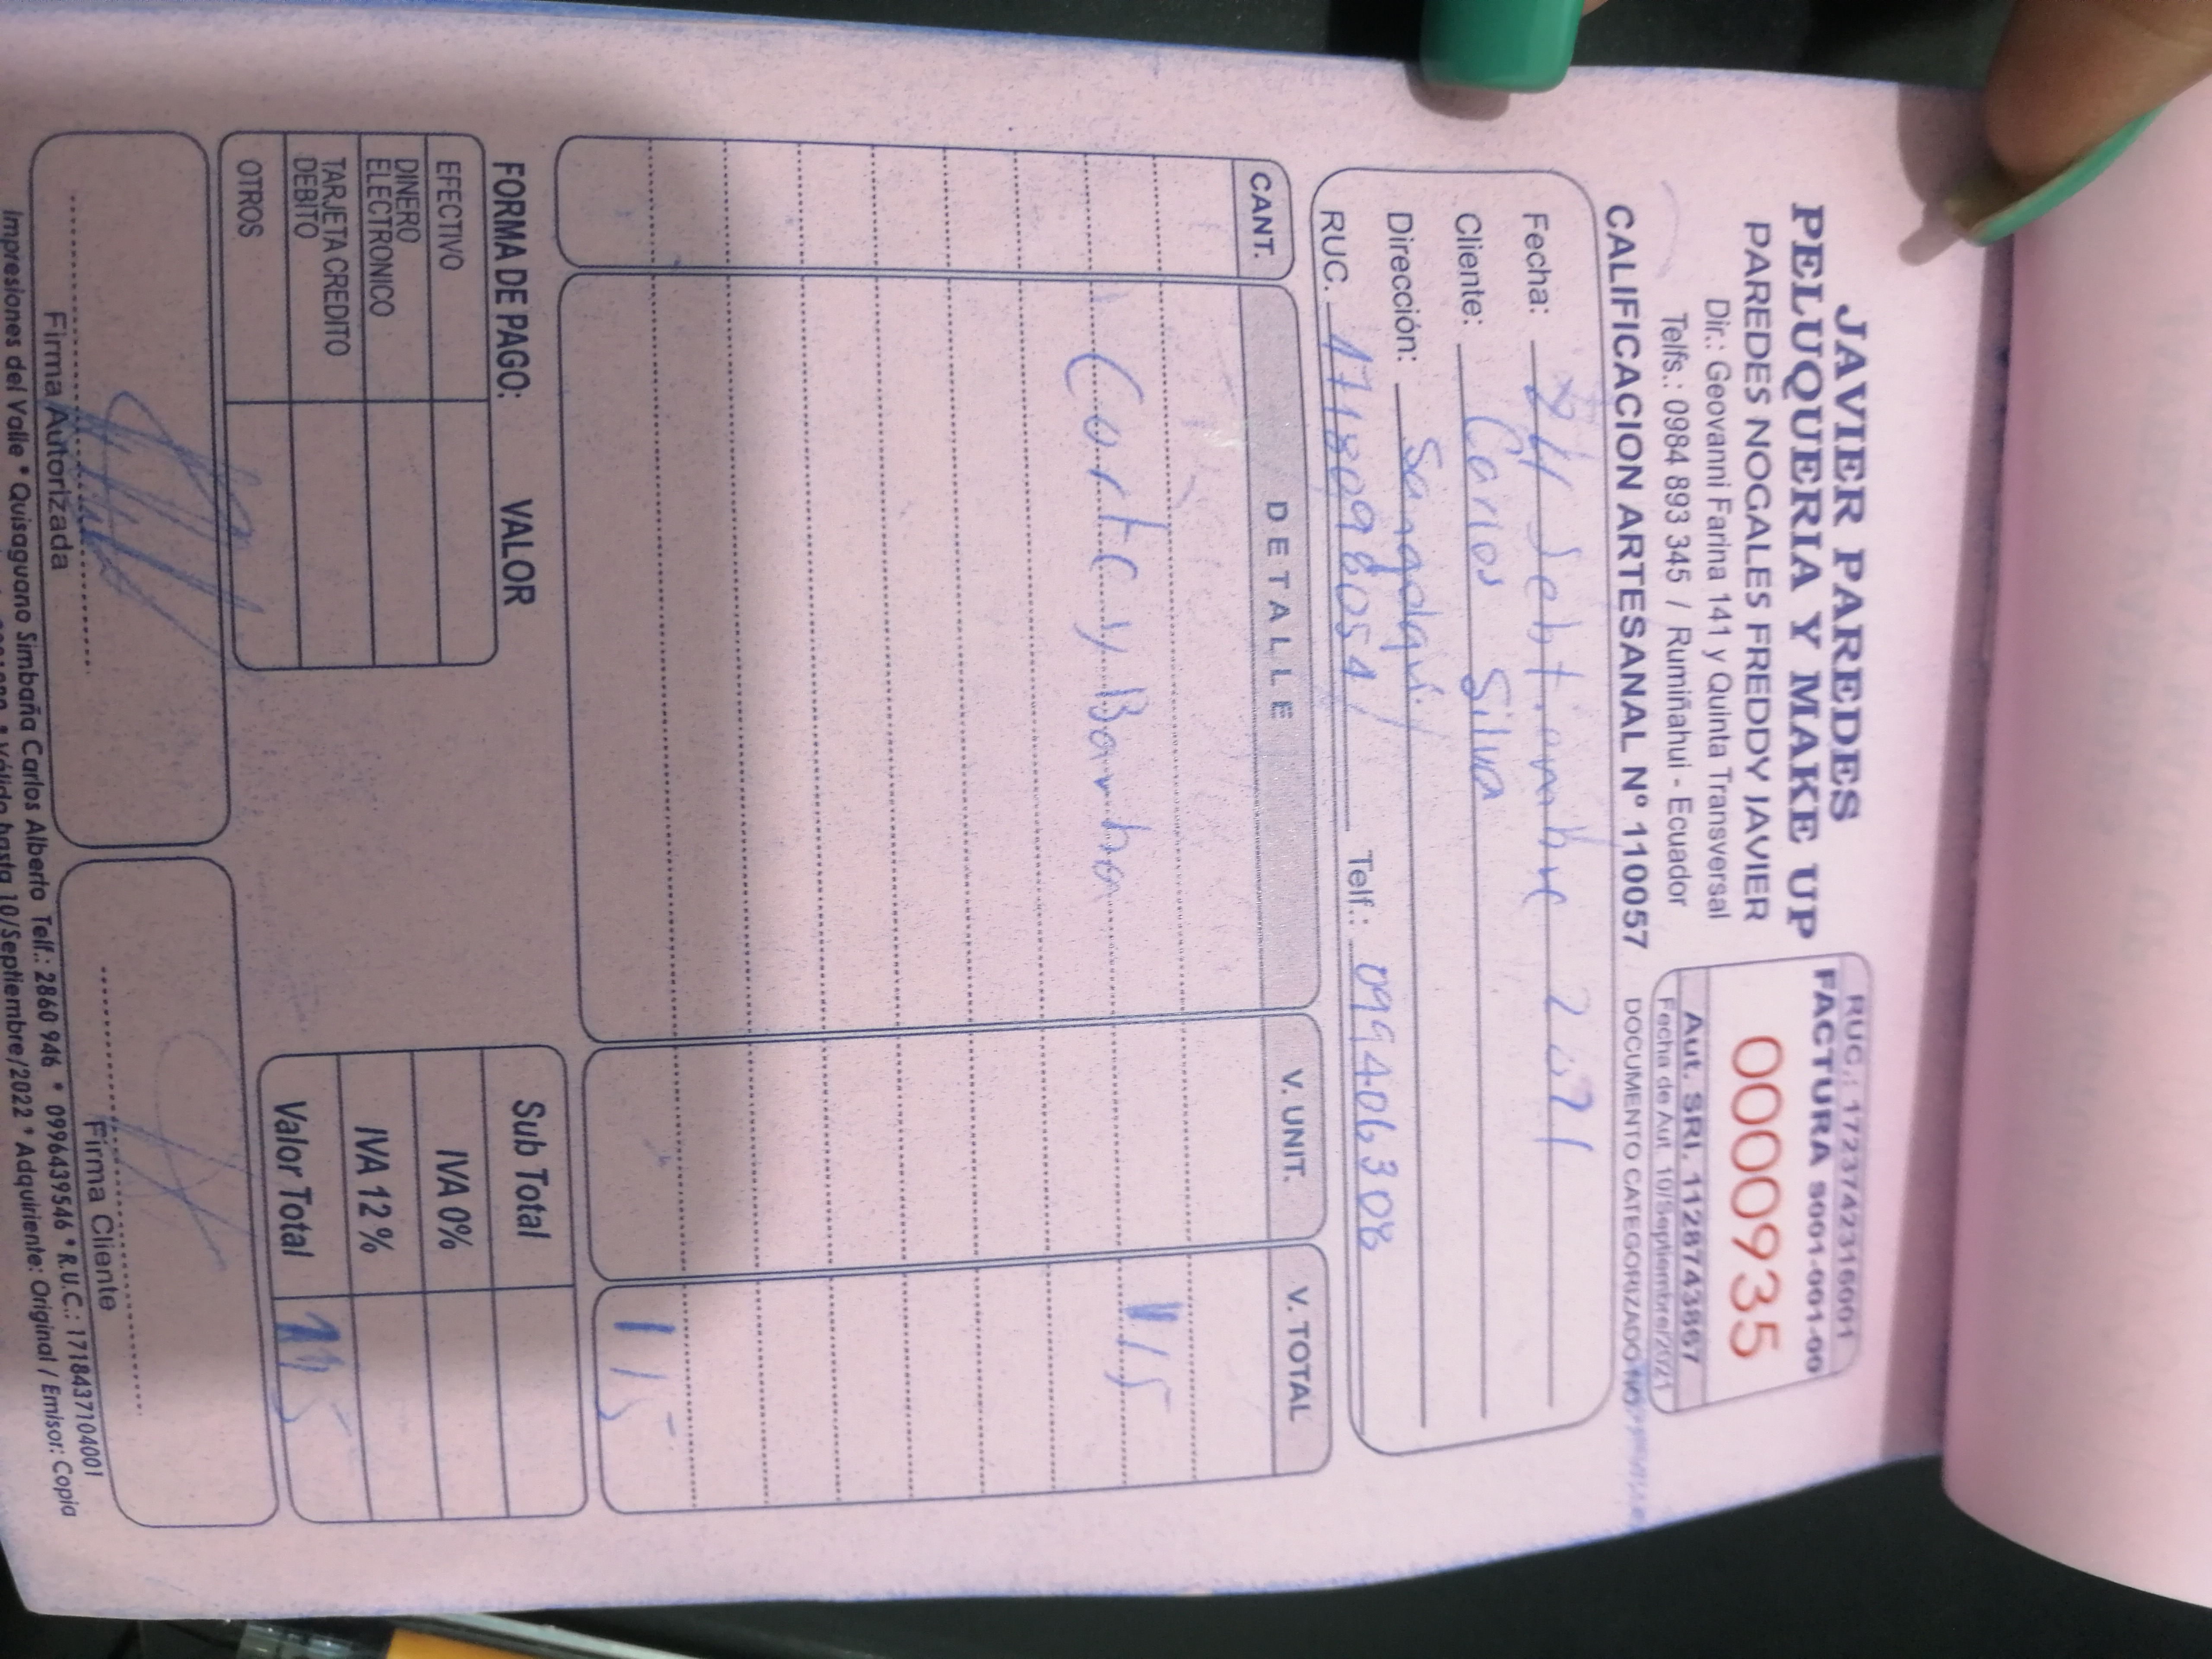 JAVIER PAREDES
PELUQUERIA Y MAKE UP
PAREDES NOGALES FREDDY JAVIER
Dir.: Geovanni Farina 141 y Quinta Transversal
Telfs.: 0984 893 345 / Rumiñahui - Ecuador
CALIFICACION ARTESANAL Nº 110057
RUC.: 1723742316001
FACTURA S001-001-00
0000935
Aut. SRI. 1128743867
Fecha de Aut. 10/Septiembre/2021
DOCUMENTO CATEGORIZADO: NO
Fecha: 24 Septiembre 2021
Cliente: Carlos Silva
Dirección: Sangolqui
RUC. 1718098054 Telf.: 099406308
CANT. DETALLE V. UNIT. V. TOTAL
Corte y Barba 15
15
FORMA DE PAGO: VALOR
EFECTIVO
DINERO ELECTRONICO
TARJETA CREDITO DEBITO
OTROS
Sub Total
IVA 0%
IVA 12 %
Valor Total 15
Firma Autorizada
Firma Cliente
Impresiones del Valle * Quisaguano Simbaña Carlos Alberto Telf.: 2860 946 * 0996439546 * R.U.C.: 1718437104001
* Válido hasta 10/Septiembre/2022 * Adquiriente: Original / Emisor: Copia